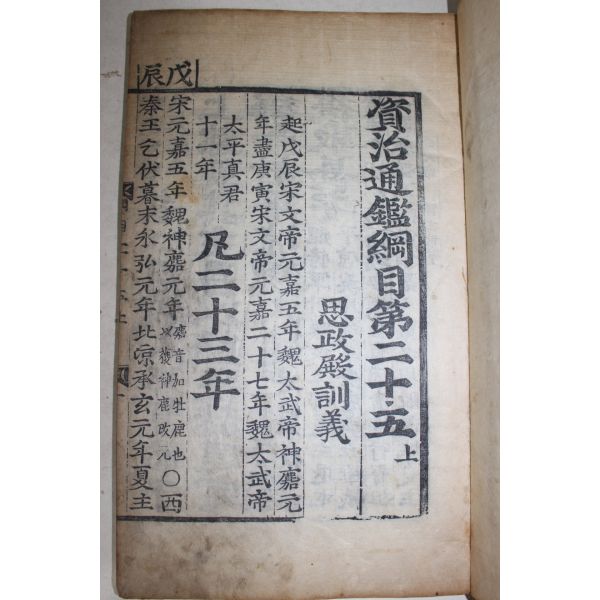 資治通鑑綱目第二十五上
思政殿訓義
起戊辰宋文帝元嘉五年魏太武帝神䴥元
年盡庚寅宋文帝元嘉二十七年魏太武帝
太平真君
十一年
凡二十三年
戊辰
宋元嘉五年魏神䴥元年䴥音加牡鹿也以獲神鹿改元○西
秦王乞伏暮末永弘元年北凉承玄元年夏主